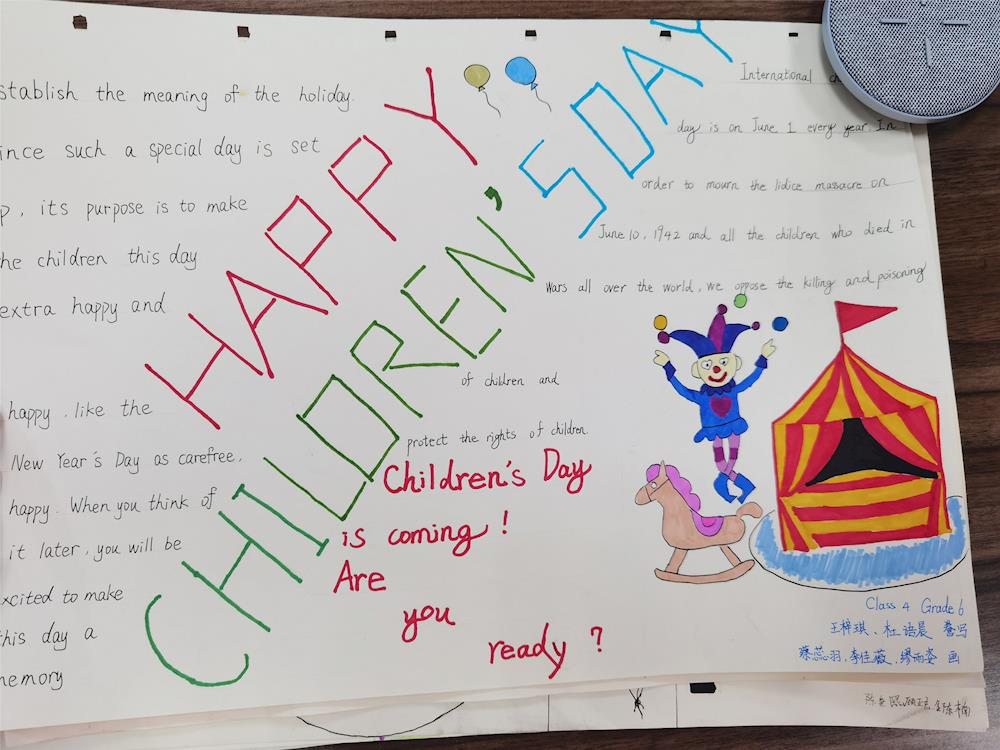 stablish the meaning of the holiday.
ince such a special day is set
p, its purpose is to make
he children this day
extra happy and
happy. like the
New Year's Day as carefree,
happy. When you think of
it later, you will be
xcited to make
this day a
emory
HAPPY
CHILDREN'S DAY
International
day is on June 1 every year. In
order to mourn the lidice massacre on
June 10, 1942 and all the children who died in
Wars all over the world, we oppose the killing and poisoning
of children and
protect the rights of children.
Children's Day
is coming!
Are
you
ready?
Class 4 Grade 6
王梓琪、杜语晨 誊写
蔡蕊羽、李佳薇、缪雨姿 画